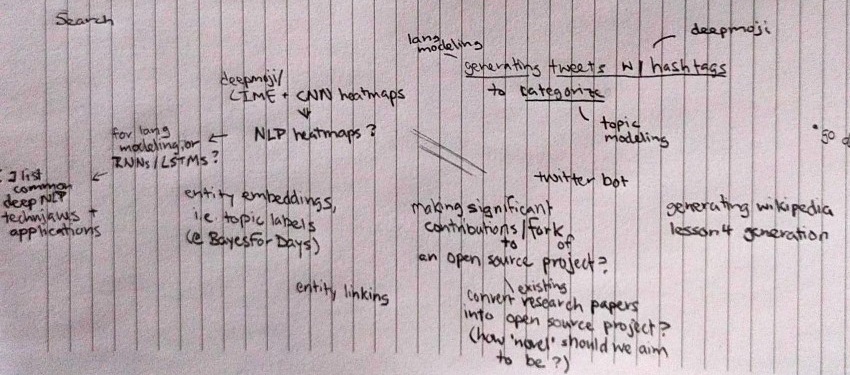 Search
lang
modeling
deepmoji
generating tweets w/ hashtags
to categorize
topic
modeling
deepmoji/
LIME + CNN heatmaps
NLP heatmaps?
for lang
modeling, or
RNNs/LSTMs?
list
common
deep NLP
techniques +
applications
entity embeddings,
i.e. topic labels
(@BayesForDays)
entity linking
twitter bot
making significant
contributions/fork
to of
an open source project?
existing
convert research papers
into open source project?
(how 'novel' should we aim
to be?)
generating wikipedia
lesson 4 generation
"50